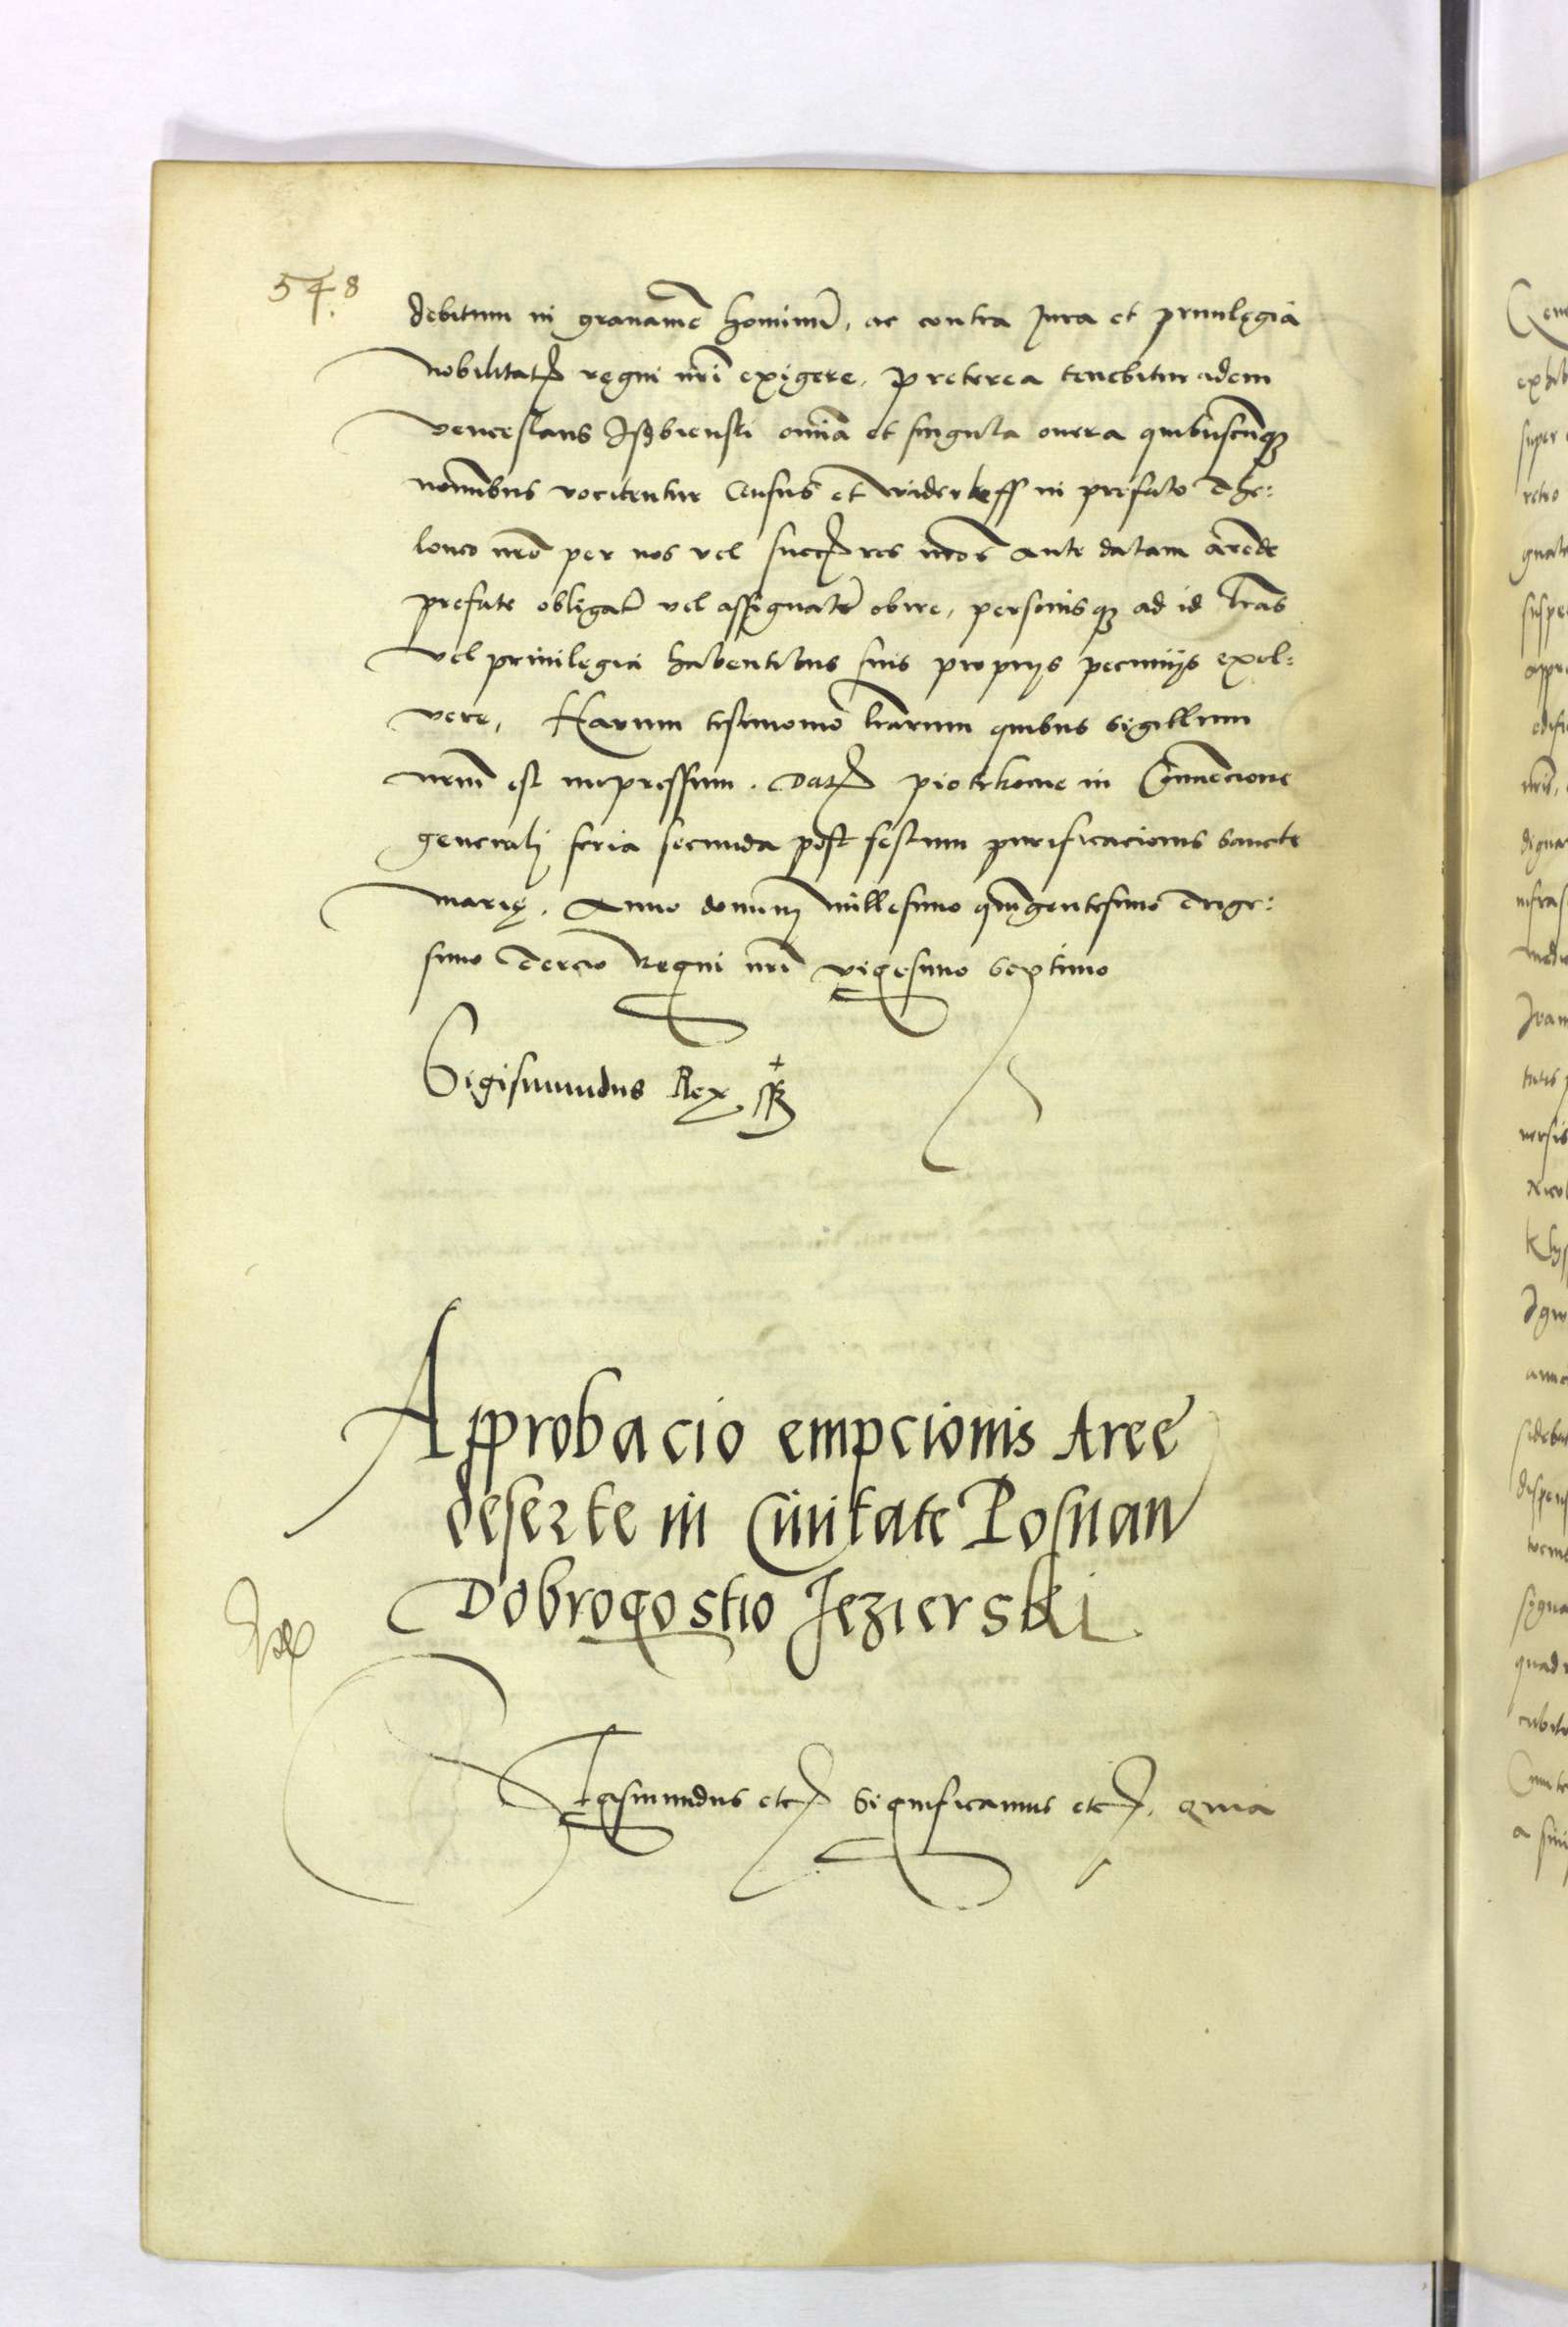 548
debitum in grauamē hominū, ac contra Jura et priuilegia
nobilitatꝭ regni nr̄i exigere, preterea tenebitur idem
venceslaus Jszbienski om̄ia et singula onera quibuscūqꝫ
nominibus vocitentur Census et widerkeff in prefato The:
loneo nr̄o per nos vel succꝭres nr̄os ante datam arēde
prefate obligatr̄ vel assignatr̄ obire, personisqꝫ ad id lr̄as
vel priuilegia habentibus suis proprijs pecunijs exol:
uere, Harum testimonio lr̄arum quibus sigillum
nr̄um est impressum. Datꝭ piotrkouie in Cōuencione
generali feria secunda post festum purificacionis sancte
marię. Anno domini millesimo quīgentesimo Trige:
simo Tercio Regni nr̄i vigesimo septimo
Sigismundus Rex sst
Approbacio empcionis Aree
deserte in Ciuitate Posnan
Dobrogostio Jezierski
Sigismundus etcꝭ Significamus etcꝭ. quia